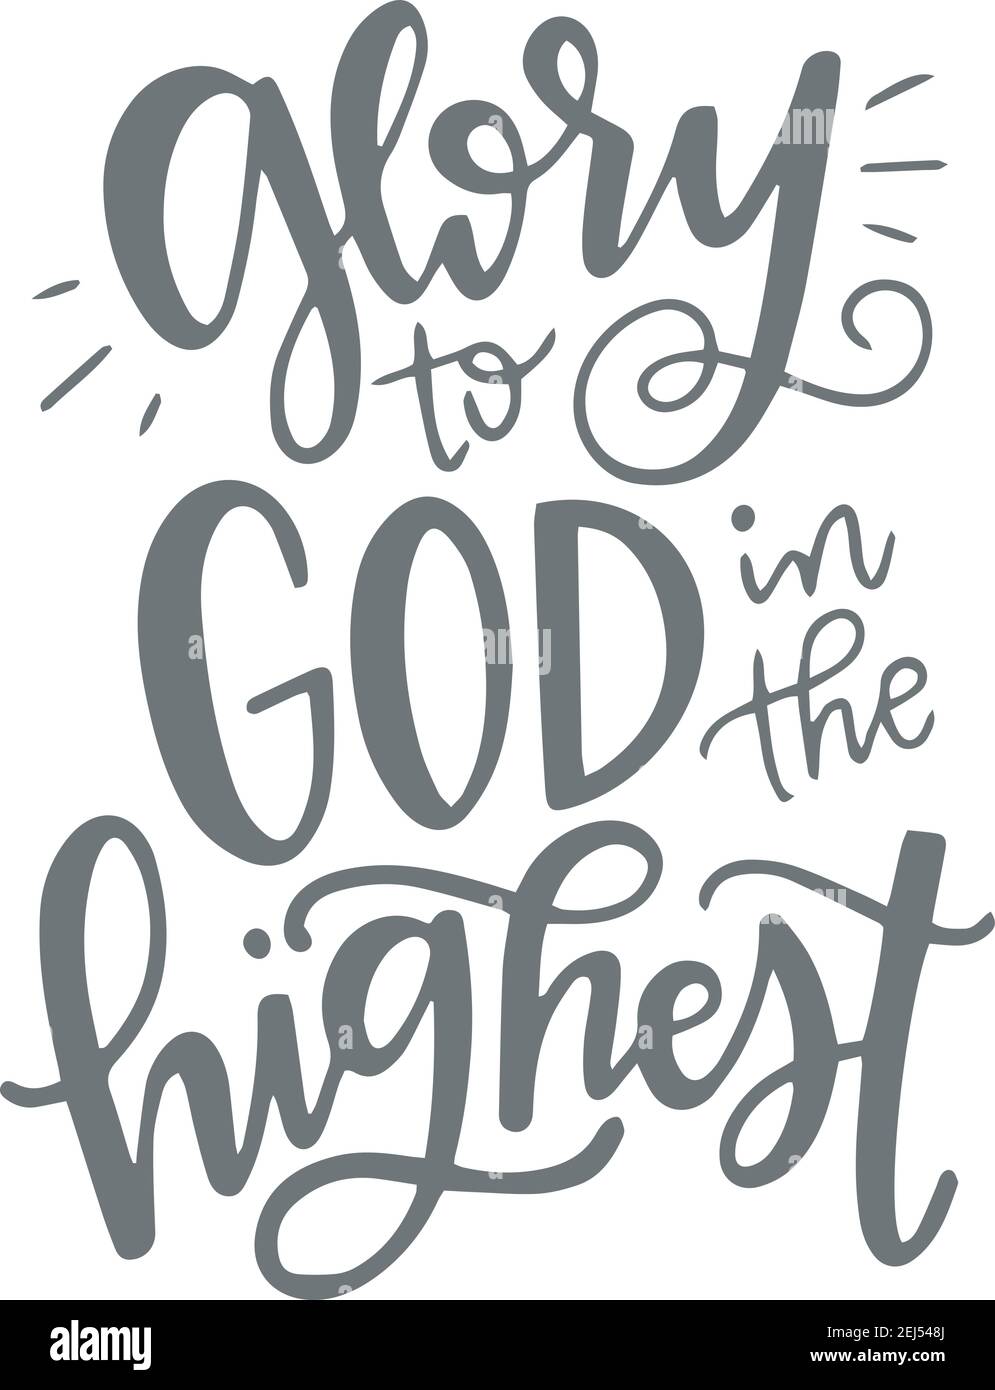 glory
to
GOD in
the
highest
alamy
Image ID: 2EJ548J
www.alamy.com